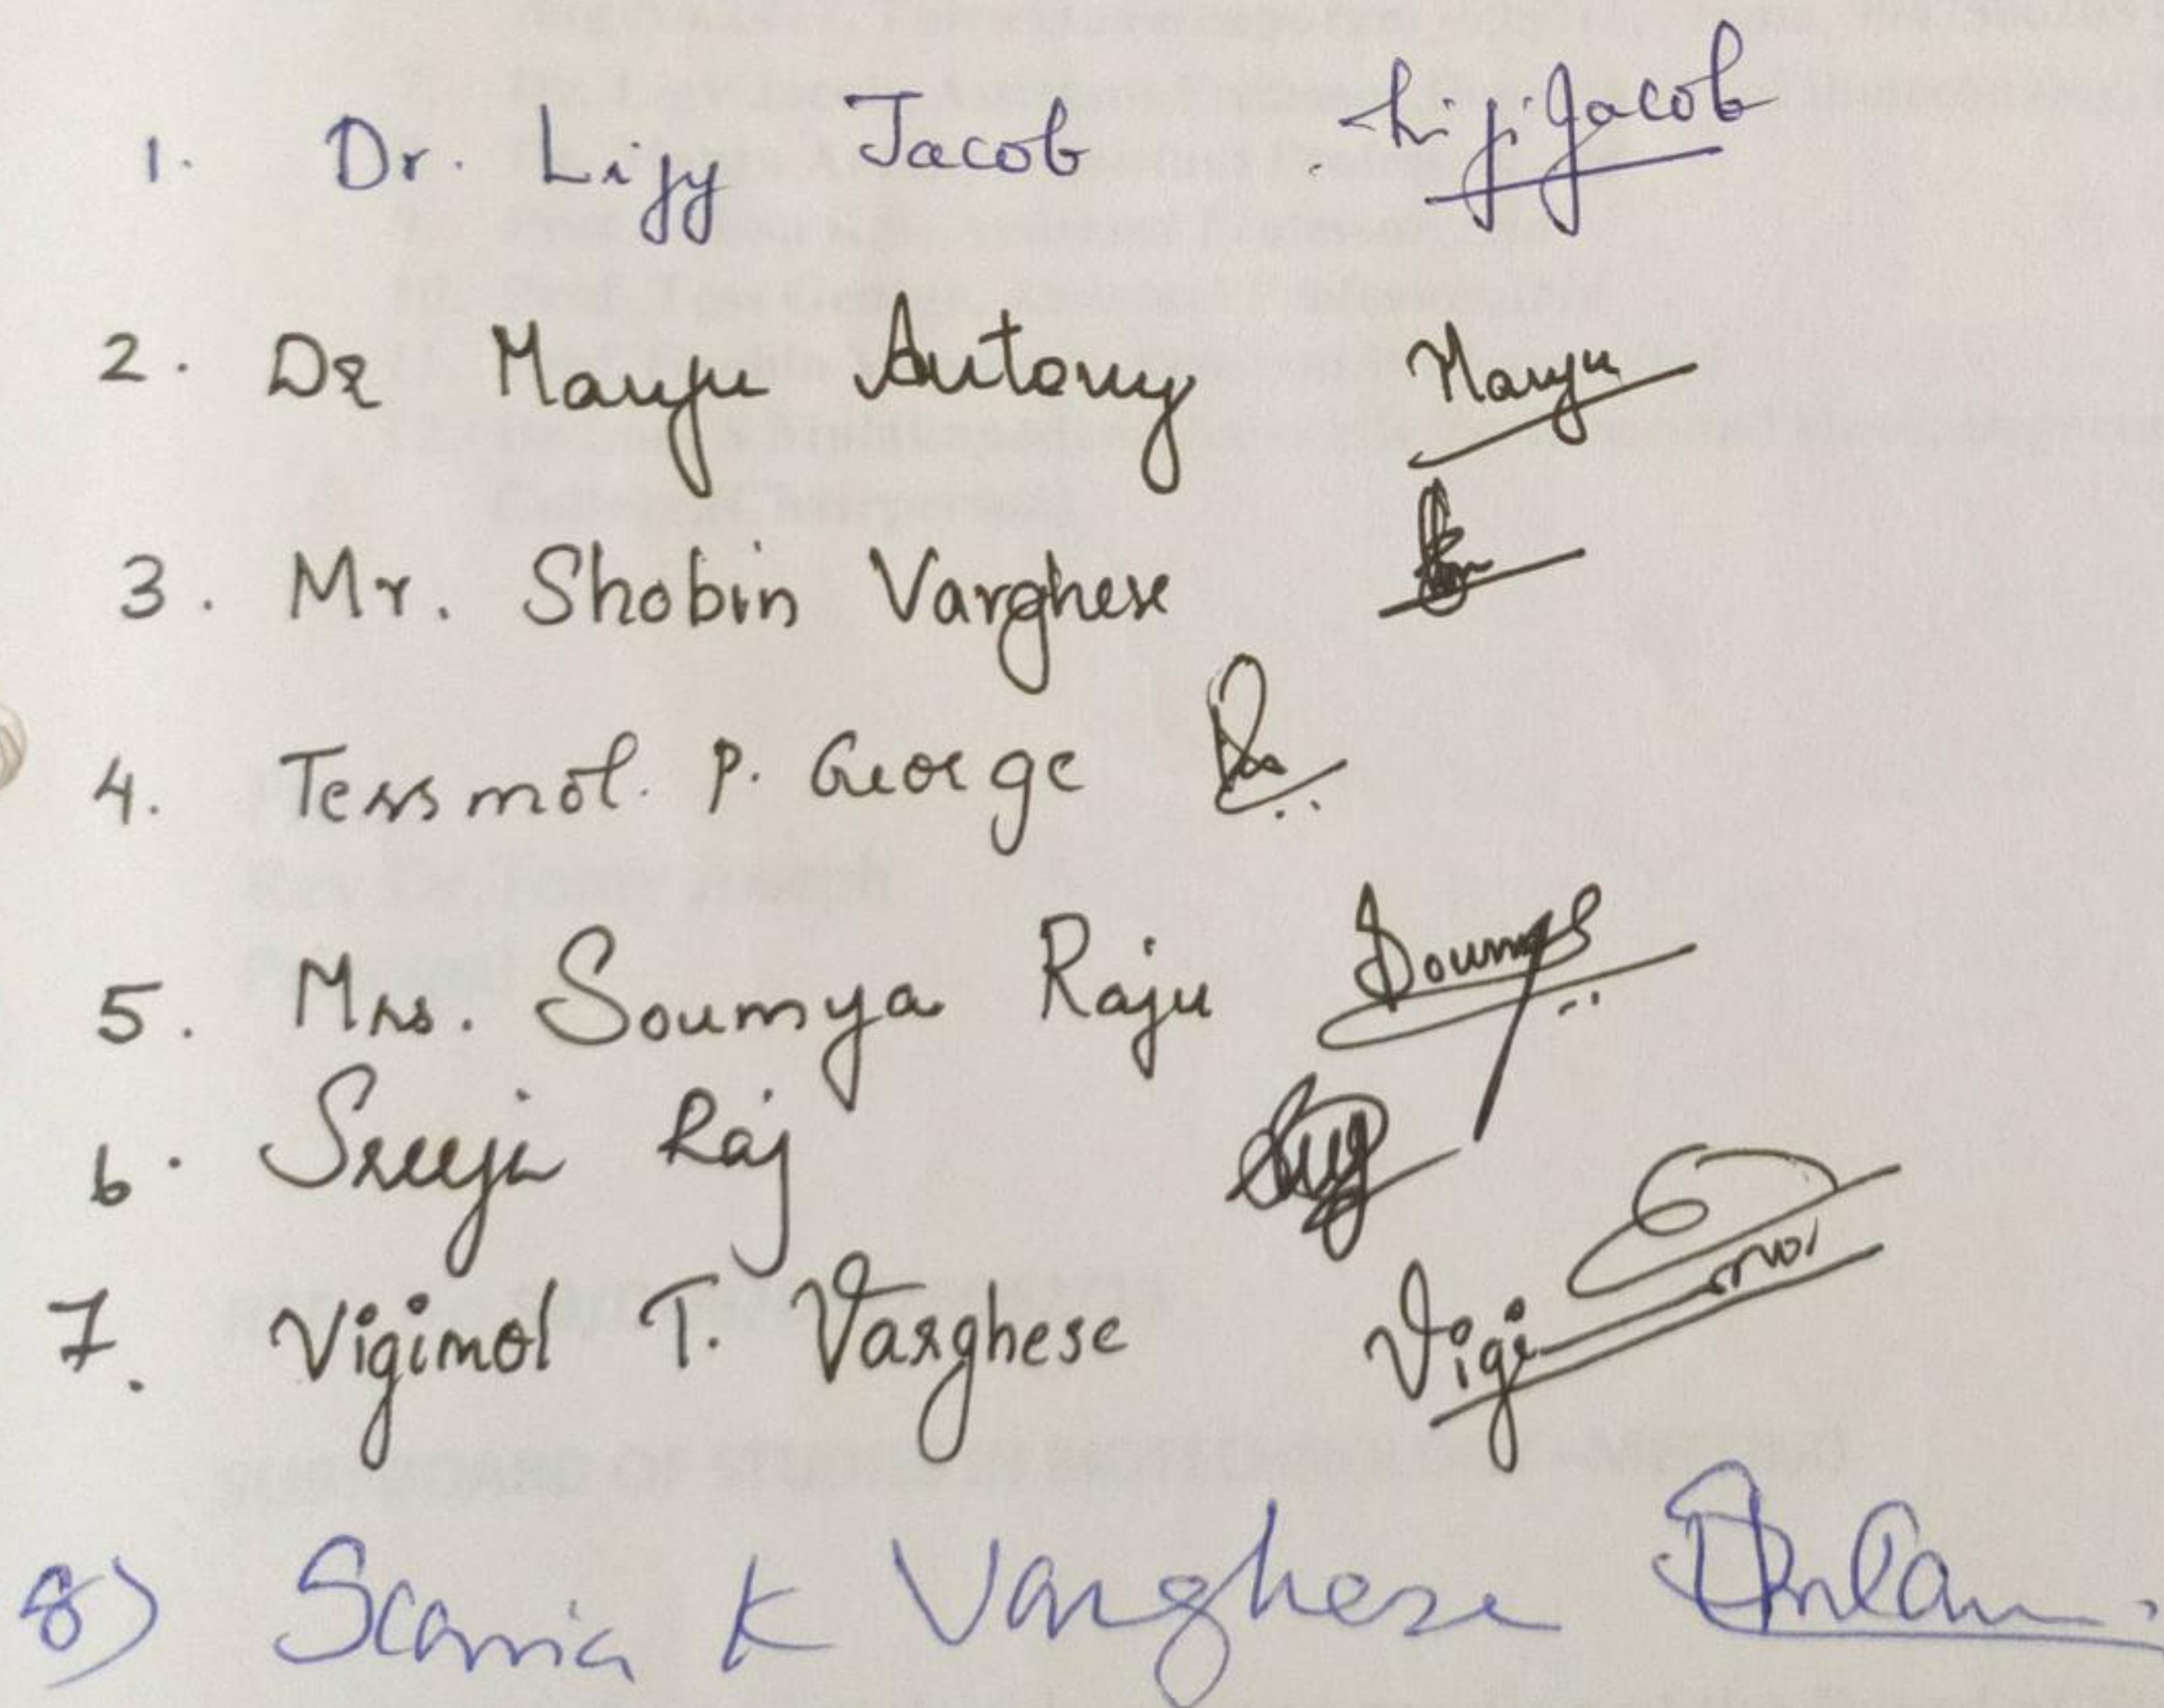 1. Dr. Lijy Jacob Liji Jacob
2. Dr Manju Antony Manju
3. Mr. Shobin Varghese
4. Tessmol. P. George
5. Mrs. Soumya Raju Soumya
6. Sreeja Raj
7. Vigimol T. Varghese Vigi mol
8) Scaria K Varghese